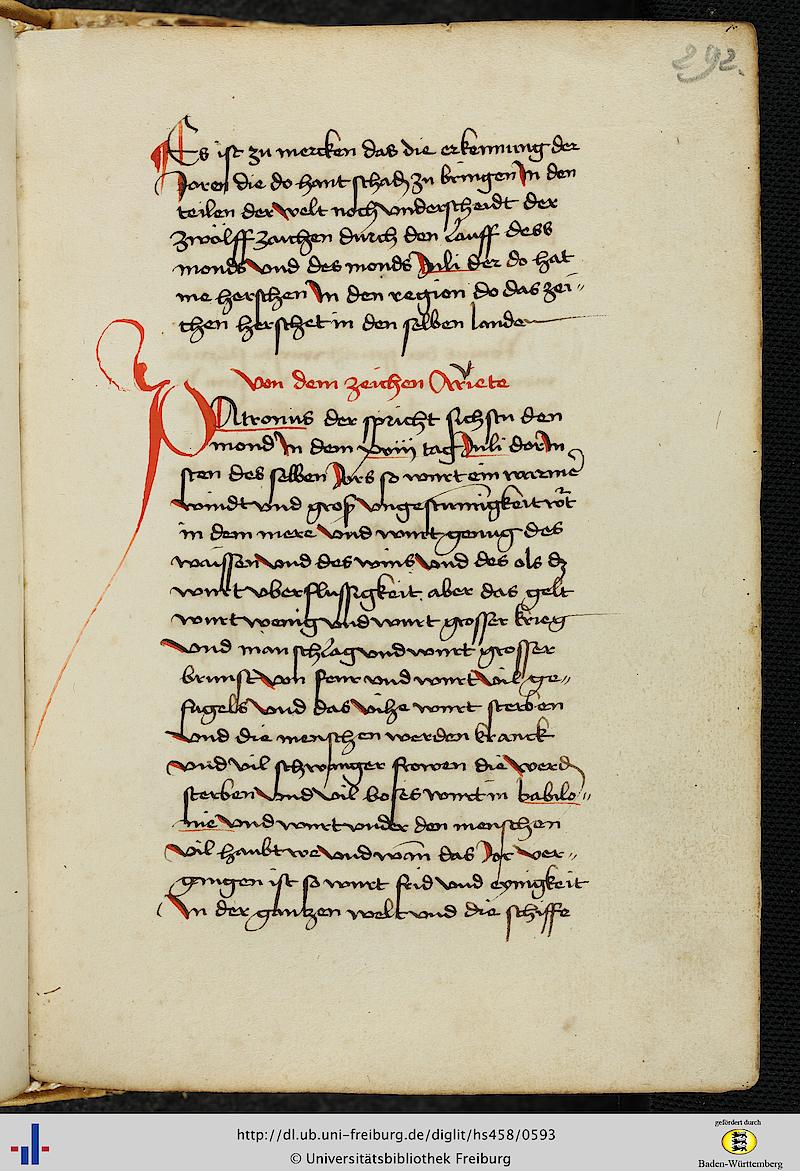 292.
Es ist zu mercken das die erkennung der
Joren die do hant schadn zu bringen Jn den
teilen der welt noch underscheidt der
zwölff zaichen durch den Lauff dess
monds vnd des monds Juli der do hat
me herschen Jn den region do das zei„
chen herschet in den selben landen
Von dem zeichen Ariete
PAtronius der spricht sichstu den
mond Jn dem xviij tag Juli dor Jn
sten des selben Jors so wurt ein warme
windt vnd groß vngestumigkeit
in dem mere vnd wurt genug des
waissen vnd des wins vnd des ols dz
wurt vberflussigkeit aber das gelt
wurt wenig vnd wurt grosser krieg
vnd manschlag vnd wurt grosser
brunst von feur vnd wurt vil ge„
fugels vnd das vihe wurt sterben
vnd die menschen werden kranck
vnd vil schwanger frowen die werdn
sterben vnd vil boses wurt in babilo„
nie vnd wurt vnder den menschen
vil haubtwe vnd wañ das Jor ver„
gangen ist so wurt frid vnd eynigkeit
Jn der gantzen welt vnd die schiffe
http://dl.ub.uni-freiburg.de/diglit/hs458/0593
© Universitätsbibliothek Freiburg
gefördert durch
Baden-Württemberg